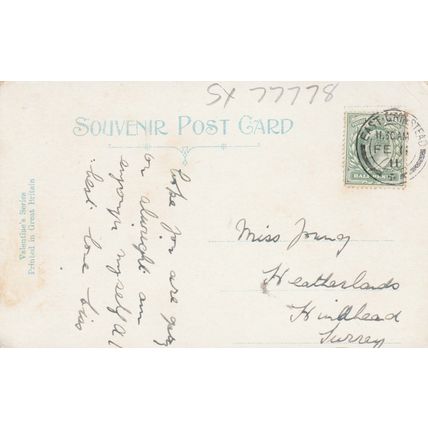 SX 77778
SOUVENIR POST CARD
Valentine's Series
Printed in Great Britain
EAST GRINSTEAD
11.30 AM
FE
11
HALFPENNY
Hope you are getting
on alright am
enjoying myself a 1
best love
Miss Young
Heatherlands
Hindhead
Surrey